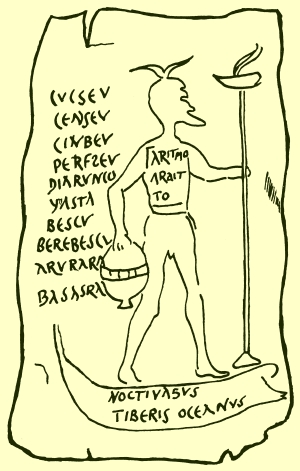 CVCSEV
CENSEV
CINBEV
PERFLEV
DIARVNCO
DEASTA
BESCV
BEREBESCV
ARVRARA
BASAGRA
ARITMO
ARAIT
TO
NOCTIVAGVS
TIBERIS OCEANVS